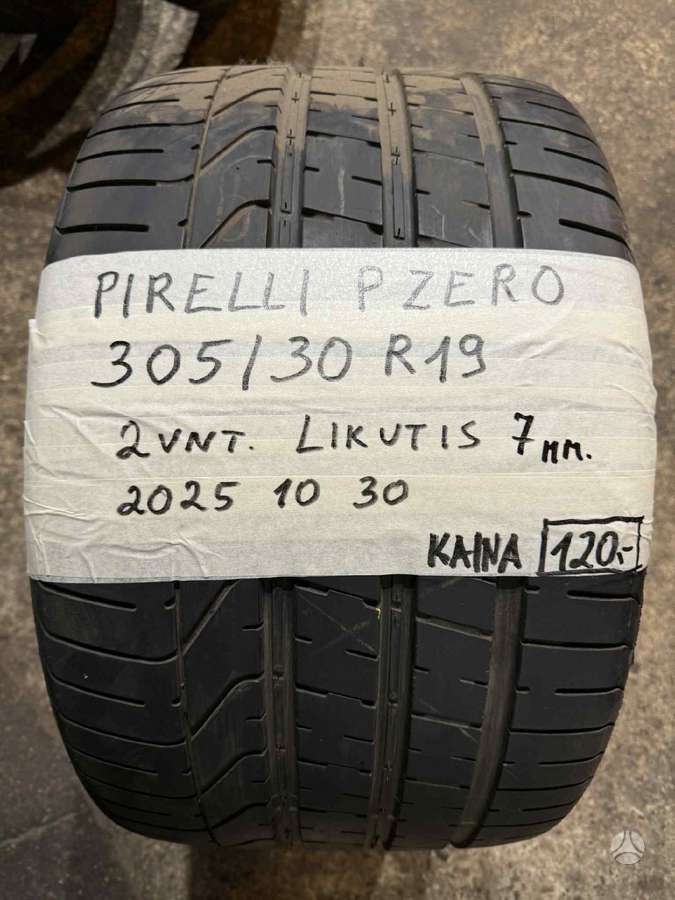 PIRELLI P ZERO
305/30 R19
2 VNT. LIKUTIS 7 mm.
2025 10 30
KAINA 120,-